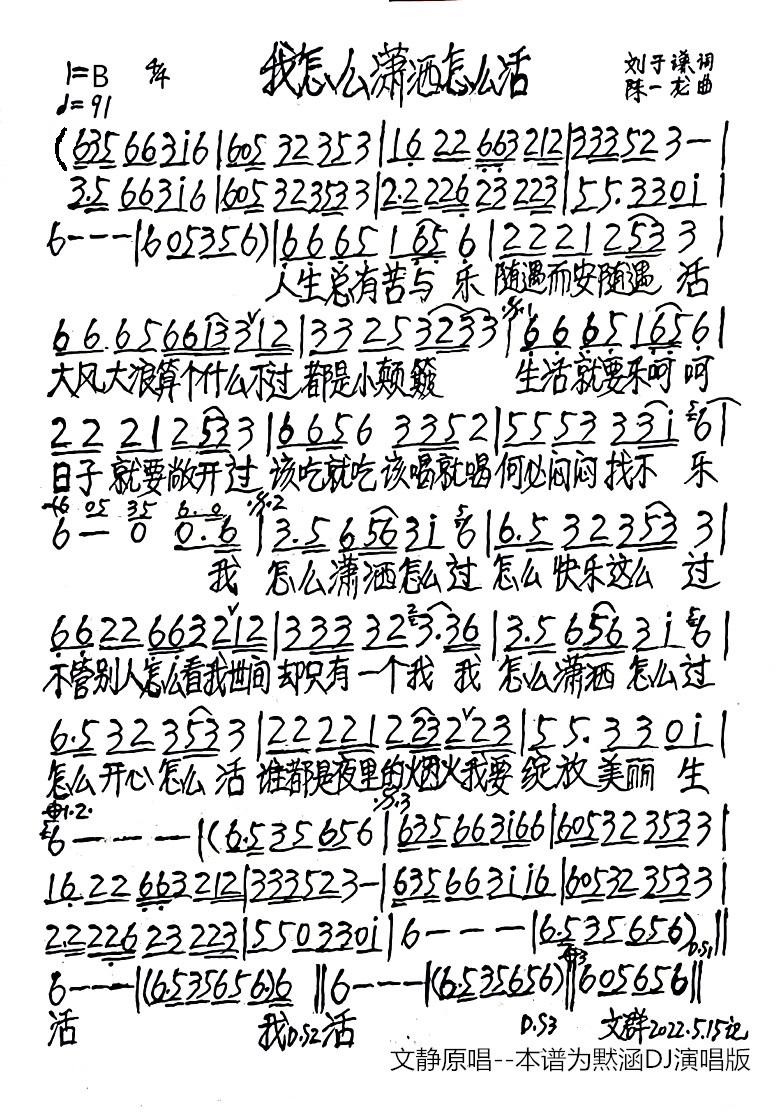 我怎么潇洒怎么活
1=B 4/4
刘子谦 词
♩=91
陈一龙 曲
(635 6631̇6|605 32 353|16 22 663212|333523—|
3.5 6631̇6|605 323533|2.2226 23 223|55.3301̇|
6---|605356)|6665 165 6|22212533|
人生总有苦与 乐 随遇而安随遇 活
66.656613312|332532333|666516561|
大风大浪算个什么不过 都是小颠簸 生活就要乐呵呵
22 212533|6656 3352|5553 331̇ 6|
日子 就要敞开过 该吃就吃该喝就喝何必闷闷找不 乐
6 — 0 0.6|3.5 65631̇ 6|6.5 32353 3|
我 怎么潇洒怎么过 怎么快乐这么 过
6622663212|3333323.36|3.5 65631̇ 6|
不管别人怎么看我世间 却只有一个我 我 怎么潇洒 怎么过
6.5 323533|222212232223|55.3301̇|
怎么开心怎么 活 谁都是夜里的烟火我要 绽放 美丽 生
6----|(6.535656|6356631̇66|605323533|
16.22663212|333523—|6356631̇1̇6|605323533|
2.222623223|5503301̇|6---|6.535656) D.S1||
6---|(6.535656.)6||6---|(6.535656)||605656||
活 我D.S2活 D.S3 文群2022.5.15记
文静原唱--本谱为默涵DJ演唱版